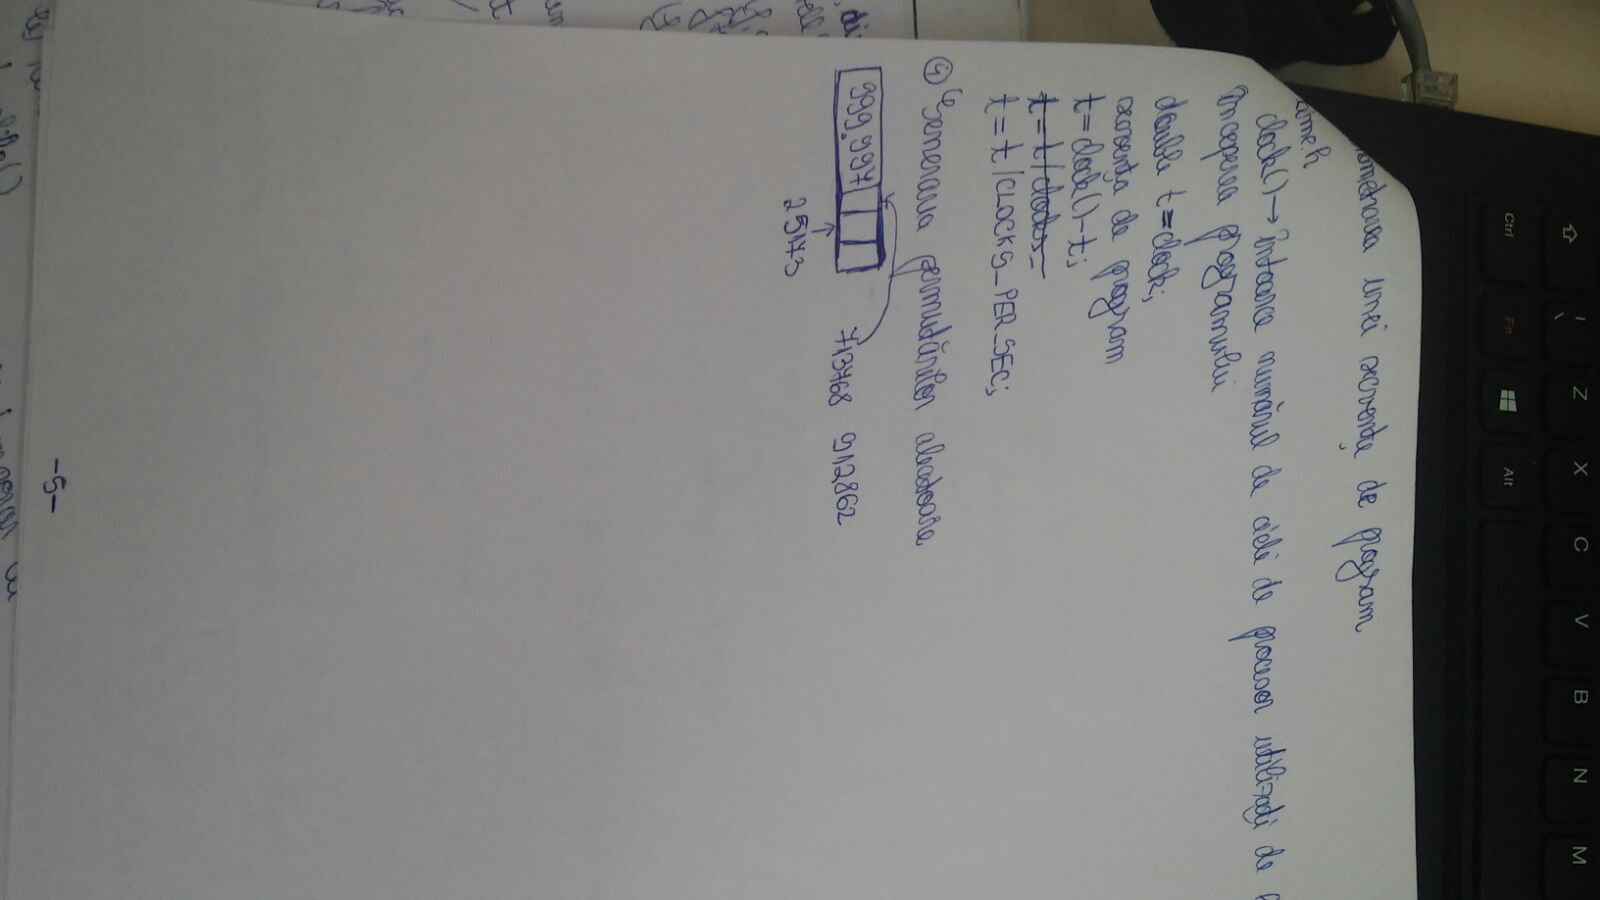 Ctrl Fn Alt
Z X C V B N M
unei secvențe de program
time.h
clock() → întoarce numărul de cicli de procesor utilizați de
începerea programului
double t=clock;
secvența de program
t=clock()-t;
t=t/clocks-
t=t/CLOCKS_PER_SEC;
④ Generarea permutărilor aleatoare
999.997
713768 912862
25173
-5-